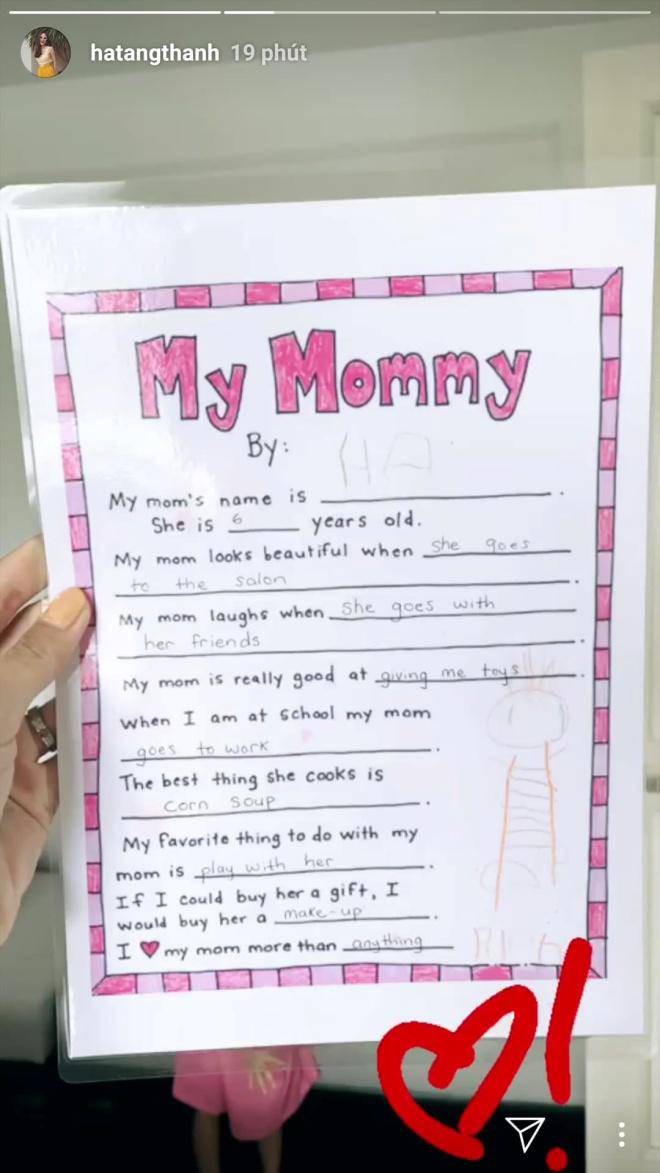 hatangthanh 19 phút
My Mommy
By: HA
My mom's name is ____________.
She is 6 years old.
My mom looks beautiful when she goes
to the salon.
My mom laughs when she goes with
her friends.
My mom is really good at giving me toys.
When I am at school my mom
goes to work.
The best thing she cooks is
corn soup.
My favorite thing to do with my
mom is play with her.
If I could buy her a gift, I
would buy her a make-up.
I ❤ my mom more than anything